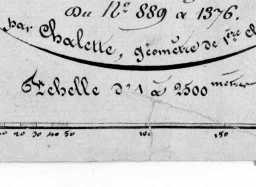 Du N° 889 à 1376.
par Chalette, géomètre de 1ère cl
Echelle d'1 à 2500 mètres
20 30 40 50 100 150